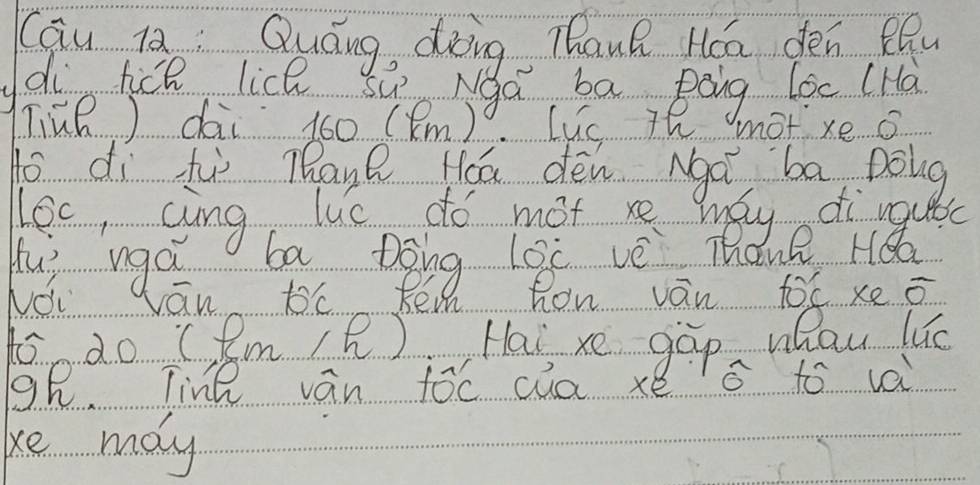 Câu 12: Quãng đường Thanh Hóa đến khu
di tích lịch sử Ngã ba Đồng Lộc (Hà
Tĩnh) dài 160 (km). Lúc 7h một xe ô
tô đi từ Thanh Hóa đến Ngã ba Đồng
Lộc, cùng lúc đó một xe máy đi ngược
từ ngã ba Đồng Lộc về Thanh Hóa
với vận tốc kém hơn vận tốc xe ô
tô 20 (km/h). Hai xe gặp nhau lúc
9h. Tính vận tốc của xe ô tô và
xe máy